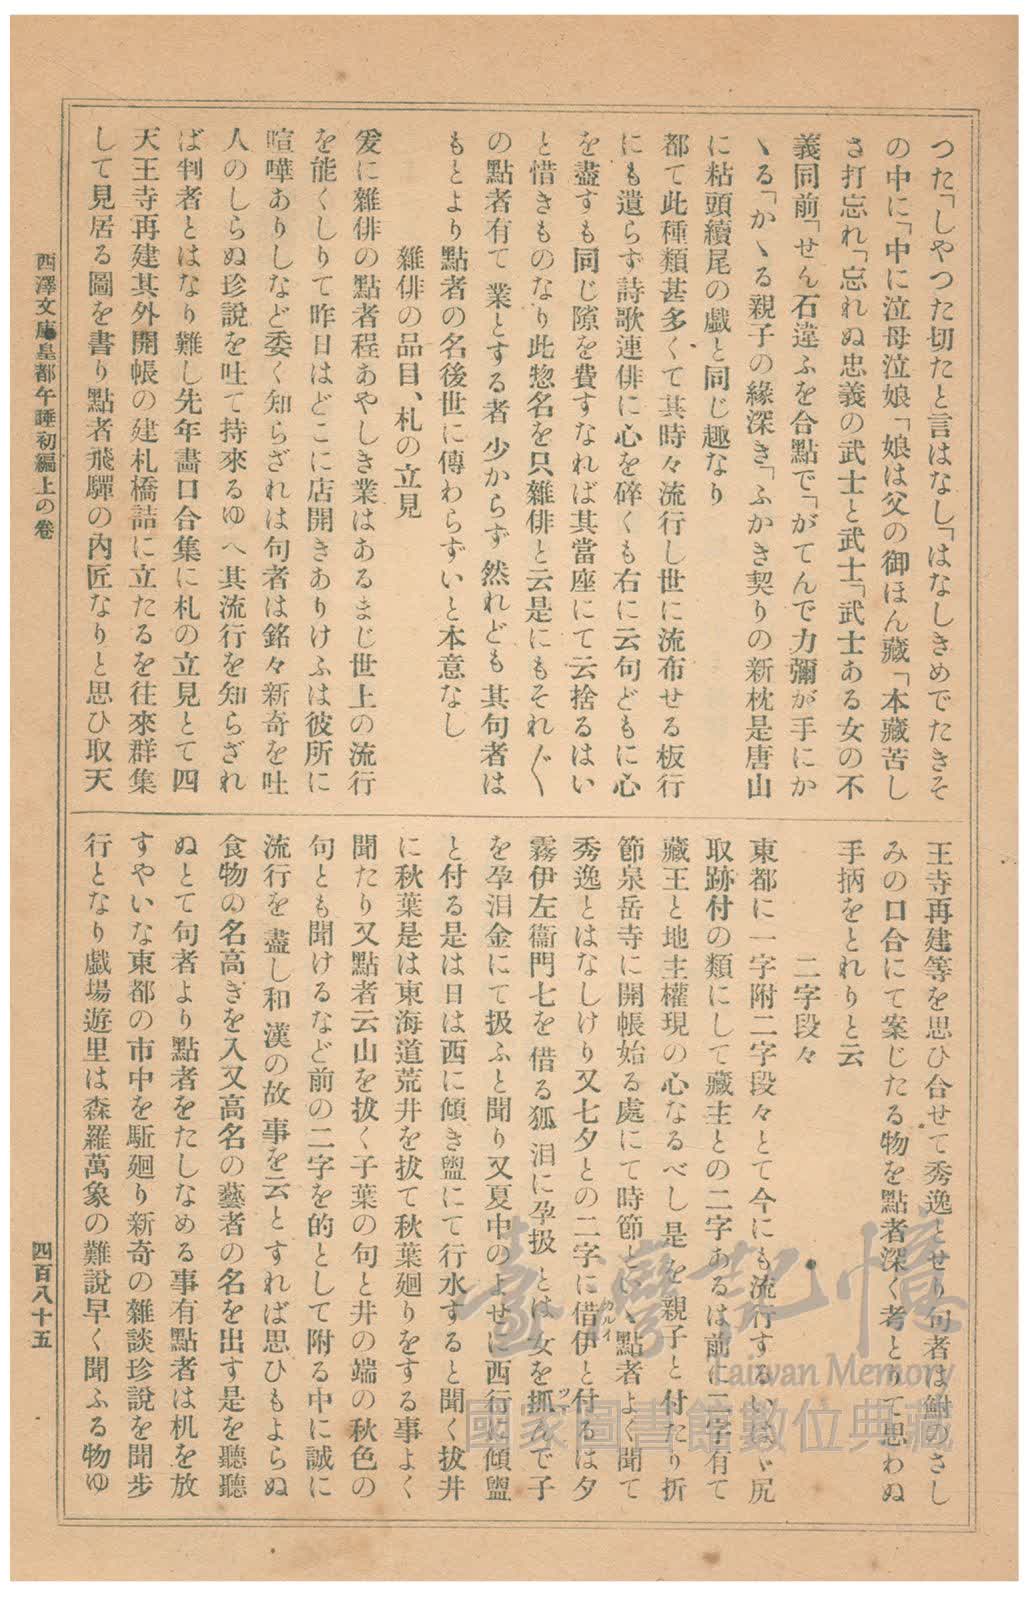 つた「しやつた切たと言はなし「はなしきめでたきそ
の中に「中に泣母泣娘「娘は父の御ほん藏「本藏苦し
さ打忘れ「忘れぬ忠義の武士と武士「武士ある女の不
義同前「せん石違ふを合點で「がてんで力彌が手にか
ゝる「かゝる親子の緣深き「ふかき契りの新枕是唐山
に粘頭續尾の戲と同じ趣なり
都て此種類甚多くて其時々流行し世に流布せる板行
にも遺らず詩歌連俳に心を碎くも右に云句どもに心
を盡すも同じ隙を費すなれば其當座にて云捨るはい
と惜きものなり此惣名を只雜俳と云是にもそれ〴〵
の點者有て業とする者少からず然れども其句者は
もとより點者の名後世に傳わらずいと本意なし
雜俳の品目、札の立見
爰に雜俳の點者程あやしき業はあるまじ世上の流行
を能くしりて昨日はどこに店開きありけふは彼所に
喧嘩ありしなど委く知らざれは句者は銘々新奇を吐
人のしらぬ珍說を吐て持來るゆへ其流行を知らざれ
ば判者とはなり難し先年畵口合集に札の立見とて四
天王寺再建其外開帳の建札橋詰に立たるを往來群集
して見居る圖を書り點者飛驒の內匠なりと思ひ取天
王寺再建等を思ひ合せて秀逸とせり句者は鮒のさし
みの口合にて案じたる物を點者深く考とりて思わぬ
手柄をとれりと云
二字段々
東都に一字附二字段々とて今にも流行するいはゞ尻
取跡付の類にして藏主との二字あるは前に二字有て
藏王と地主權現の心なるべし是を親子と付たり折
節泉岳寺に開帳始る處にて時節といゝ點者よく聞て
秀逸とはなしけり又七夕との二字に借伊と付るは夕
霧伊左衞門七を借る狐泪に孕扱とは女を抓んで子
を孕泪金にて扱ふと聞り又夏中のよせに西行に傾盥
と付る是は日は西に傾き盥にて行水すると聞く拔井
に秋葉是は東海道荒井を拔て秋葉廻りをする事よく
聞たり又點者云山を拔く子葉の句と井の端の秋色の
句とも聞けるなど前の二字を的として附る中に誠に
流行を盡し和漢の故事を云とすれば思ひもよらぬ
食物の名高きを入又高名の藝者の名を出す是を聽聽
ぬとて句者より點者をたしなめる事有點者は机を放
すやいな東都の市中を駈廻り新奇の雜談珍說を聞步
行となり戲場遊里は森羅萬象の難說早く聞ふる物ゆ
西澤文庫●皇都午睡初編上の卷
四百八十五
臺灣記憶
Taiwan Memory
國家圖書館數位典藏